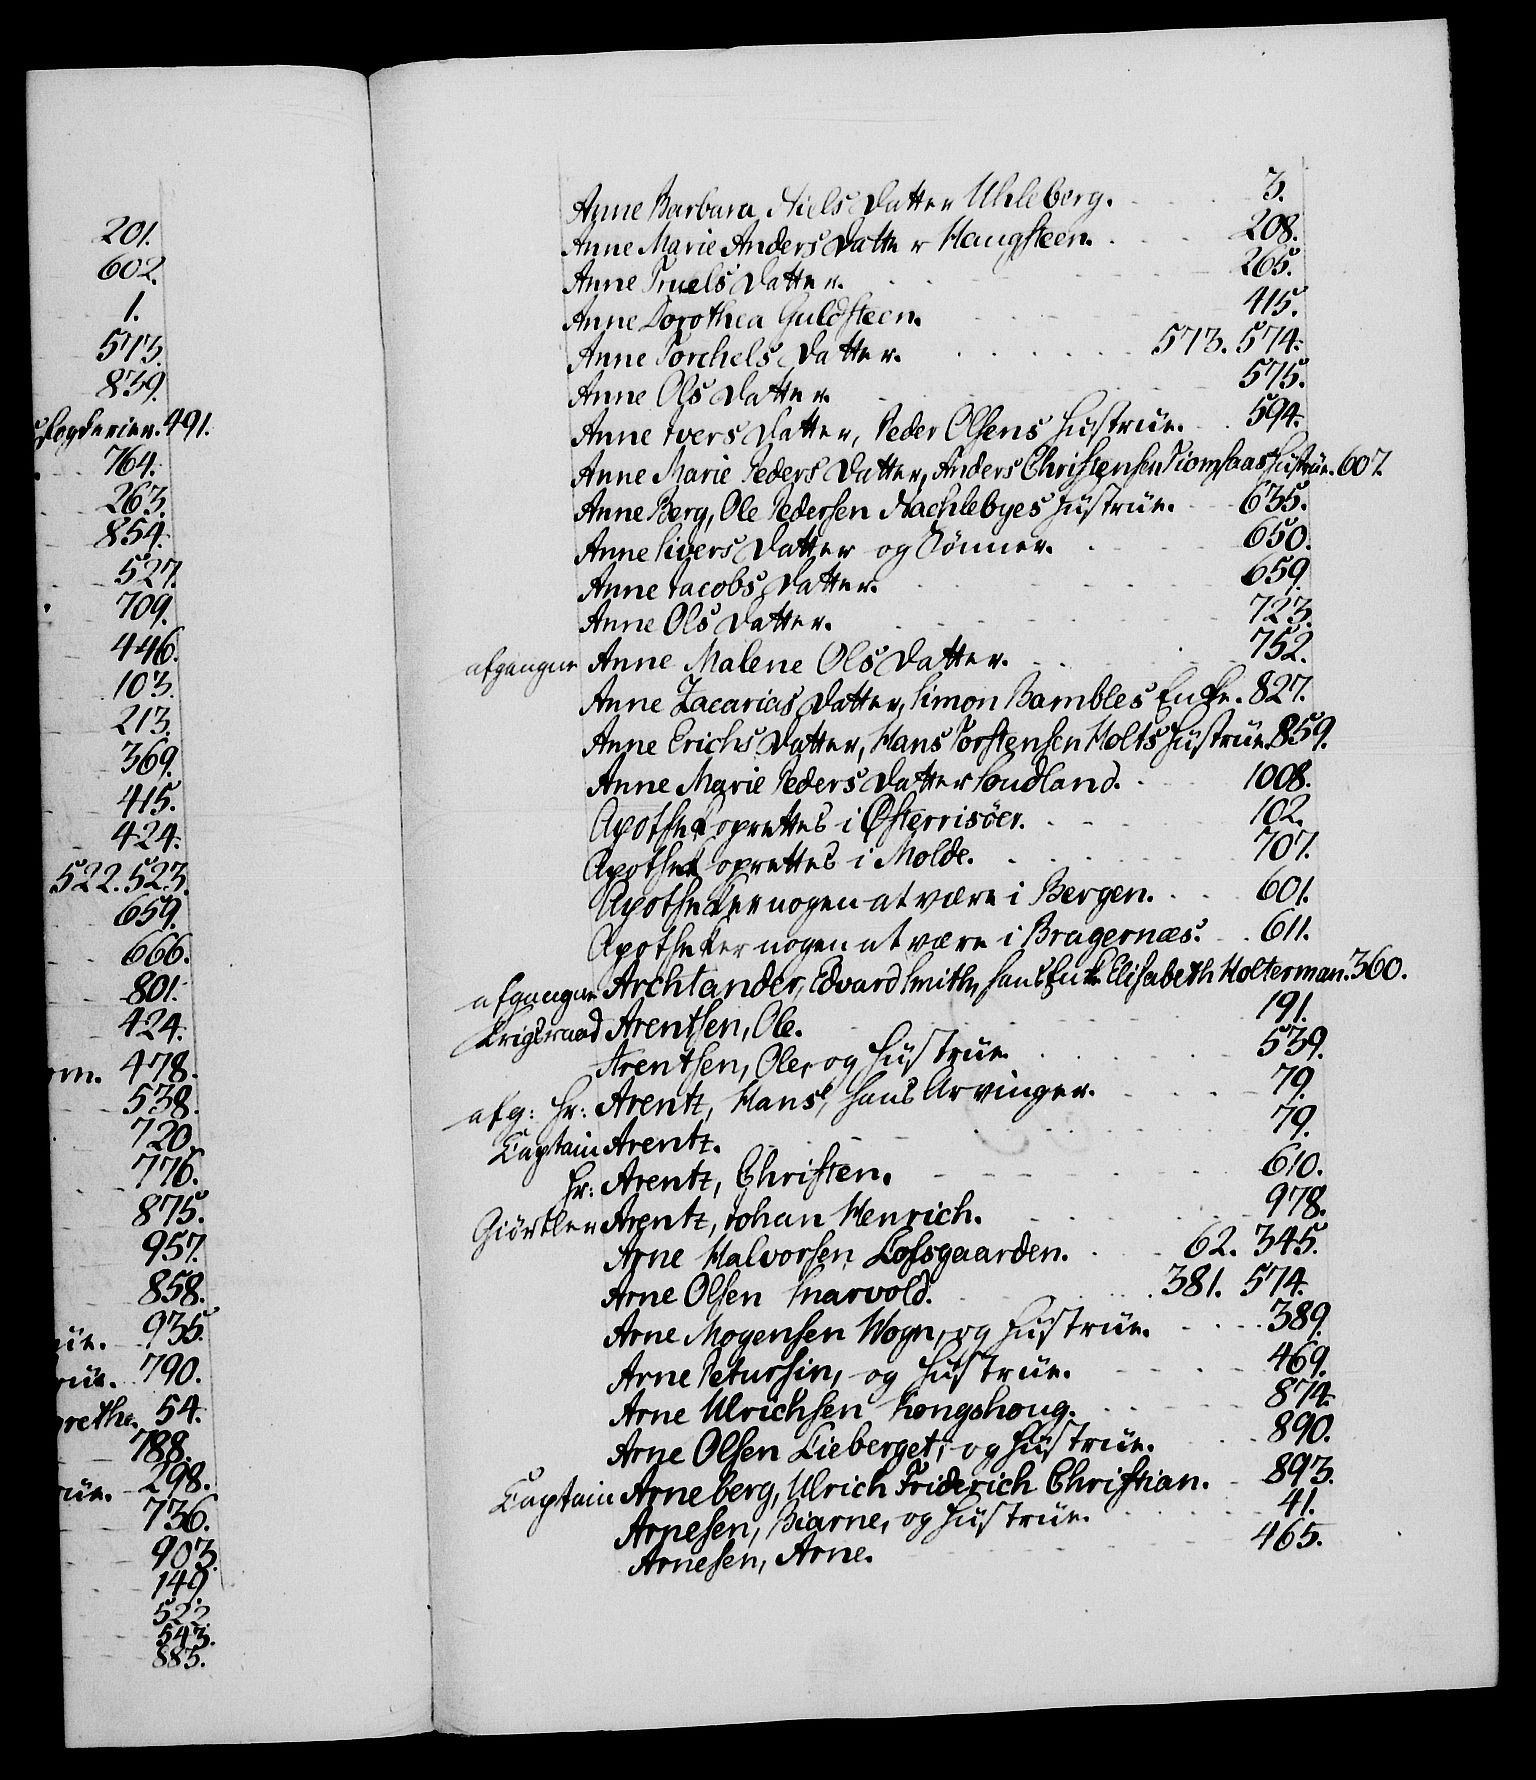 201.
602.
1.
573.
839.
Fogderier. 491.
764.
263.
854.
527.
709.
446.
103.
213.
369.
415.
424.
522. 523.
659.
666.
801.
424.
478.
538.
720.
776.
875.
957.
858.
935.
790.
grethe. 54.
788.
298.
736.
903.
149.
522.
543.
885.
Anne Barbara Niels Datter Uhleberg. 3.
Anne Marie Anders Datter Haugsteen. 208.
Anne Truels Datter. 265.
Anne Dorothea Guldsteen. 415.
Anne Torchels Datter. 573. 574.
Anne Ols Datter. 575.
Anne Ivers Datter, Peder Olsens Hustrue. 594.
Anne Marie Peders Datter, Anders Christensen Hustrue. 607.
Anne Berg, Ole Pedersen Nachlebyes Hustrue. 635.
Anne Sivers Datter og Sönner. 650.
Anne Jacobs Datter. 659.
Anne Ols Datter. 723.
afgangne Anne Malene Ols Datter. 752.
Anne Zacarias Datter, Simon Bambles Enke. 827.
Anne Erichs Datter, Hans Torstensen Holts Hustrue 859.
Anne Marie Peders Datter Soudland. 1008.
Apothek oprettes i Østerrisöer. 102.
Apothek oprettes i Molde. 707.
Apotheker nogen at være i Bergen. 601.
Apotheker nogen at være i Bragernæs. 611.
afgangne Archtander, Edvard Smith, hans Enke Elisabeth Holterman. 360.
Krigsraad Arentsen, Ole. 191.
Arentsen, Ole, og Hustrue. 539.
afg: Hr: Arentz, Hans, hans Arvinger. 79.
Captain Arentz. 79.
Hr: Arentz, Christen. 610.
Giörtler Arentz, Johan Henrich. 978.
Arne Halvorsen Lofsgaarden. 62. 345.
Arne Olsen Snarvold. 381. 574.
Arne Mogensen Wogn, og Hustrue. 389.
Arne Peturssin, og Hustrue. 469.
Arne Ulrichsen Kongshoug. 874.
Arne Olsen Lieberget, og Hustrue. 890.
Captain Arneberg, Ulrich Friderich Christian. 893.
Arnesen, Biarne, og Hustrue. 41.
Arnesen, Arne. 465.